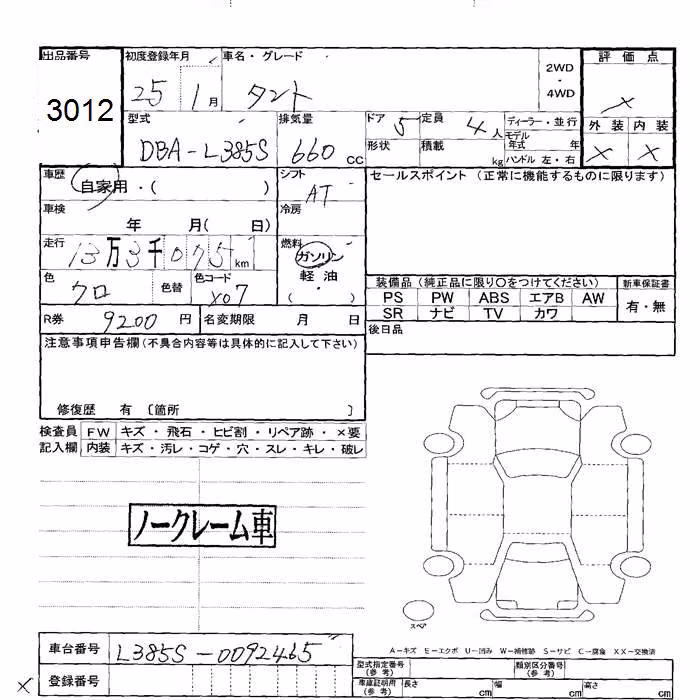 出品番号 初度登録年月 車名・グレード 2WD・4WD 評価点
3012 25 1月 タント ×
型式 排気量 ドア 5 定員 4人 ディーラー・並行 外装 内装
DBA-L385S 660cc 形状 積載 kg モデル年式 年 ハンドル 左・右 × ×
車歴 自家用・( ) シフト AT セールスポイント (正常に機能するものに限ります)
車検 年 月( 日) 冷房
走行 13万3千075km 燃料 ガソリン・軽油・( )
色 クロ 色替 色コード X07 装備品 (純正品に限り〇をつけてください) 新車保証書
PS PW ABS エアB AW 有・無
SR ナビ TV カワ
R券 9200円 名変期限 月 日 後日品
注意事項申告欄 (不具合内容等は具体的に記入して下さい)
修復歴 有 〔箇所 〕
検査員 FW キズ・飛石・ヒビ割・リペア跡・×要
記入欄 内装 キズ・汚レ・コゲ・穴・スレ・キレ・破レ
ノークレーム車
スペア
A-キズ E-エクボ U-凹み W-補修跡 S-サビ C-腐食 XX-交換済
車台番号 L385S-0092465 型式指定番号(参考) 類別区分番号(参考)
× 登録番号 車庫証明用(参考) 長さ cm 幅 cm 高さ cm